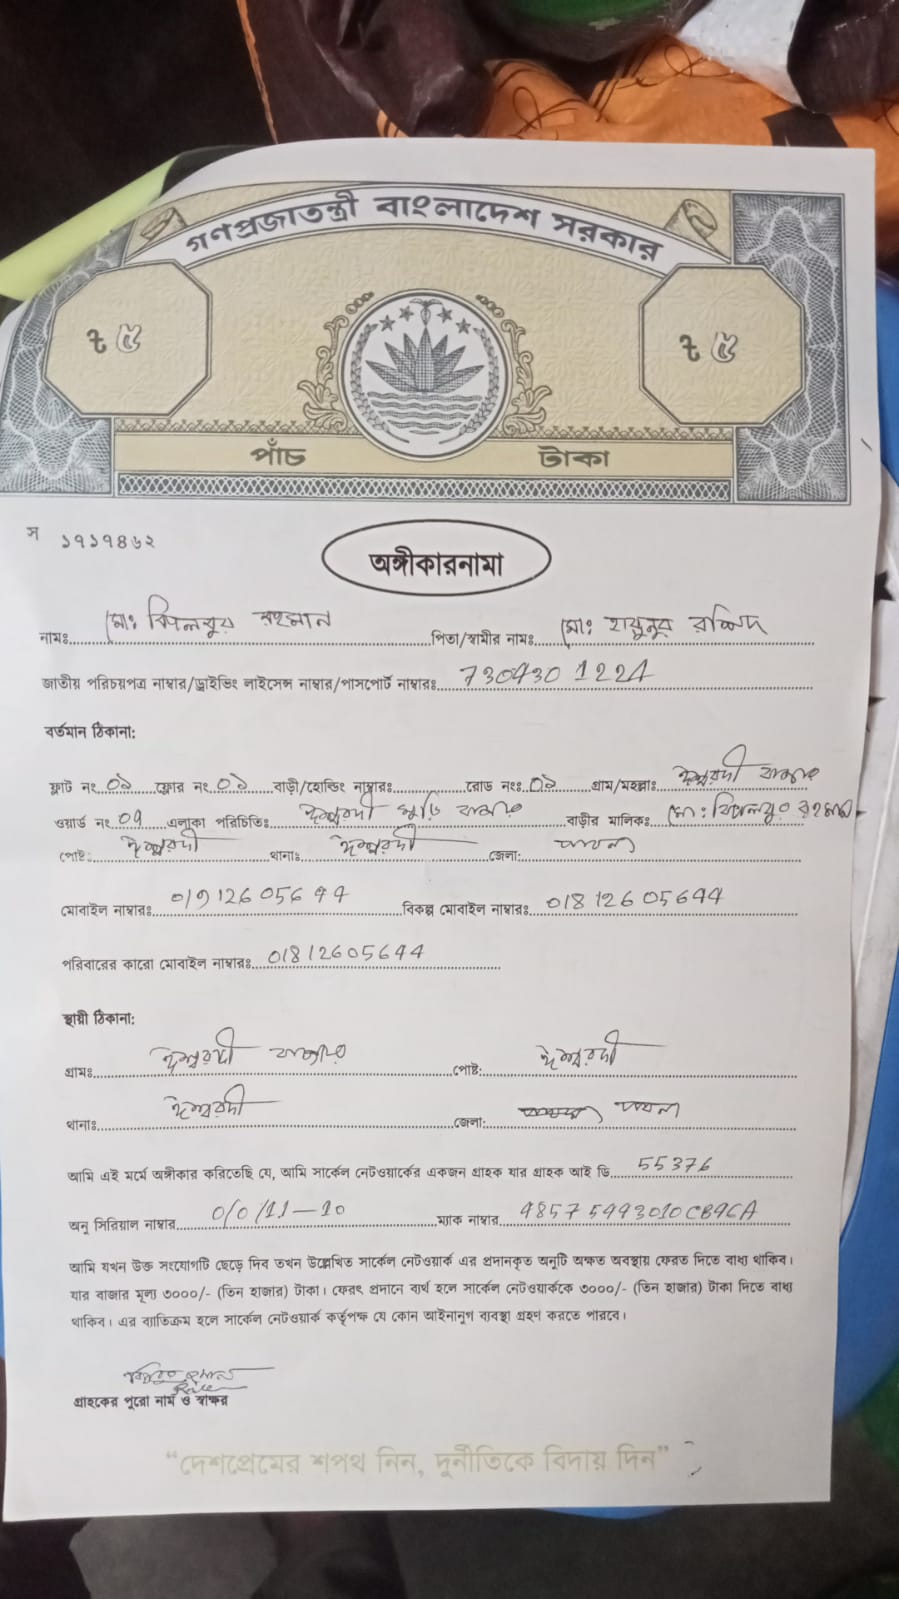 গণপ্রজাতন্ত্রী বাংলাদেশ সরকার
৳ ৫ ৳ ৫
পাঁচ টাকা
স ১৭১৭৪৬২
অঙ্গীকারনামা
নামঃ মোঃ রহমান পিতা/স্বামীর নামঃ মোঃ হারুনুর রশিদ
জাতীয় পরিচয়পত্র নাম্বার/ড্রাইভিং লাইসেন্স নাম্বার/পাসপোর্ট নাম্বারঃ 7304301224
বর্তমান ঠিকানা:
ফ্লাট নং ০১ ফ্লোর নং ০১ বাড়ী/হোল্ডিং নাম্বারঃ রোড নংঃ ০১ গ্রাম/মহল্লাঃ ঈশ্বরদী বাজার
ওয়ার্ড নং 07 এলাকা পরিচিতিঃ ঈশ্বরদী মুড়ি বাজার বাড়ীর মালিকঃ মোঃ রহমান
পোষ্ট: ঈশ্বরদী থানাঃ ঈশ্বরদী জেলা: পাবনা
মোবাইল নাম্বারঃ বিকল্প মোবাইল নাম্বারঃ 01812605644
পরিবারের কারো মোবাইল নাম্বারঃ 01812605644
স্থায়ী ঠিকানা:
গ্রামঃ ঈশ্বরদী বাজার পোষ্ট: ঈশ্বরদী
থানাঃ ঈশ্বরদী জেলা: পাবনা
আমি এই মর্মে অঙ্গীকার করিতেছি যে, আমি সার্কেল নেটওয়ার্কের একজন গ্রাহক যার গ্রাহক আই ডি 55376
অনু সিরিয়াল নাম্বার 0/0/11-10 ম্যাক নাম্বার
আমি যখন উক্ত সংযোগটি ছেড়ে দিব তখন উল্লেখিত সার্কেল নেটওয়ার্ক এর প্রদানকৃত অনুটি অক্ষত অবস্থায় ফেরত দিতে বাধ্য থাকিব।
যার বাজার মূল্য ৩০০০/- (তিন হাজার) টাকা। ফেরৎ প্রদানে ব্যর্থ হলে সার্কেল নেটওয়ার্ককে ৩০০০/- (তিন হাজার) টাকা দিতে বাধ্য
থাকিব। এর ব্যতিক্রম হলে সার্কেল নেটওয়ার্ক কর্তৃপক্ষ যে কোন আইনানুগ ব্যবস্থা গ্রহণ করতে পারবে।
গ্রাহকের পুরো নাম ও স্বাক্ষর
“দেশপ্রেমের শপথ নিন, দুর্নীতিকে বিদায় দিন”